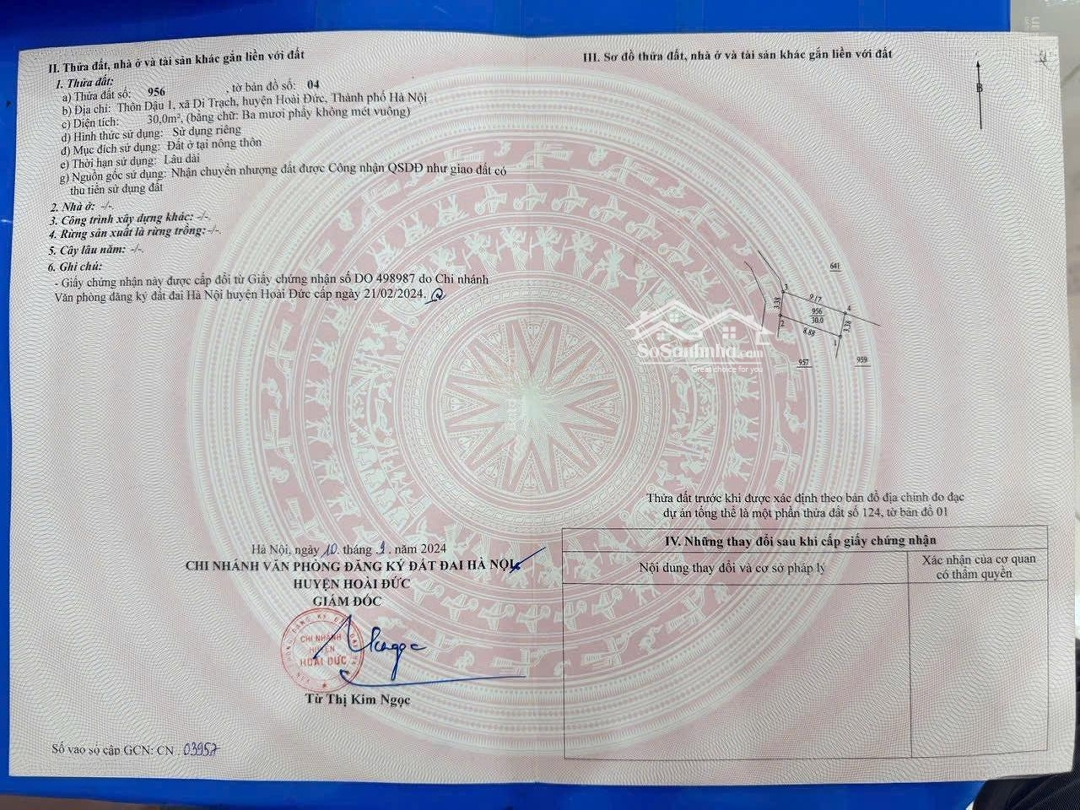 II. Thửa đất, nhà ở và tài sản khác gắn liền với đất
1. Thửa đất:
a) Thửa đất số: 956 , tờ bản đồ số: 04
b) Địa chỉ: Thôn Dậu 1, xã Di Trạch, huyện Hoài Đức, Thành phố Hà Nội
c) Diện tích: 30,0m², (bằng chữ: Ba mươi phẩy không mét vuông)
d) Hình thức sử dụng: Sử dụng riêng
đ) Mục đích sử dụng: Đất ở tại nông thôn
e) Thời hạn sử dụng: Lâu dài
g) Nguồn gốc sử dụng: Nhận chuyển nhượng đất được Công nhận QSDĐ như giao đất có
thu tiền sử dụng đất
2. Nhà ở: -/-.
3. Công trình xây dựng khác: -/-.
4. Rừng sản xuất là rừng trồng: -/-.
5. Cây lâu năm: -/-.
6. Ghi chú:
- Giấy chứng nhận này được cấp đổi từ Giấy chứng nhận số DO 498987 do Chi nhánh
Văn phòng đăng ký đất đai Hà Nội huyện Hoài Đức cấp ngày 21/02/2024.
Hà Nội, ngày 10 tháng 9 năm 2024
CHI NHÁNH VĂN PHÒNG ĐĂNG KÝ ĐẤT ĐAI HÀ NỘI
HUYỆN HOÀI ĐỨC
GIÁM ĐỐC
CHI NHÁNH
HUYỆN
HOÀI ĐỨC
Từ Thị Kim Ngọc
Số vào sổ cấp GCN: CN 03957
III. Sơ đồ thửa đất, nhà ở và tài sản khác gắn liền với đất
B
641
3
9.17
4
3.38
956
30.0
3.36
2
8.88
1
957
959
SoSanhnha.com
Great choice for you
Thửa đất trước khi được xác định theo bản đồ địa chính đo đạc
dự án tổng thể là một phần thửa đất số 124, tờ bản đồ 01
IV. Những thay đổi sau khi cấp giấy chứng nhận
Nội dung thay đổi và cơ sở pháp lý
Xác nhận của cơ quan
có thẩm quyền